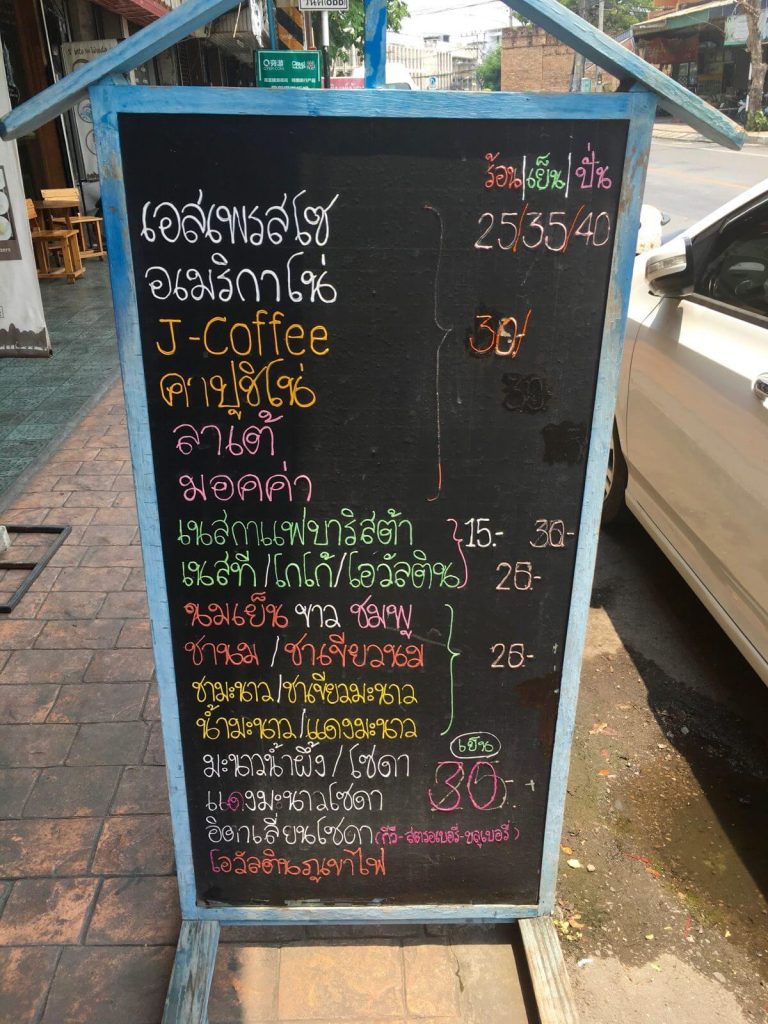 ร้อน|เย็น|ปั่น
เอสเพรสโซ 25/35/40
อเมริกาโน่
J-Coffee 30/
คาปูชิโน่
ลาเต้
มอคค่า
เนสกาแฟบาริสต้า 15.- 30.-
เนสที/โกโก้/โอวัลติน 25.-
นมเย็น ขาว ชมพู
ชานม/ชาเขียวนม 25-
ชามะนาว/ชาเขียวมะนาว
น้ำมะนาว/แดงมะนาว
มะนาวน้ำผึ้ง/โซดา เย็น
แดงมะนาวโซดา 30.-
อิตาเลี่ยนโซดา (กีวี-สตรอเบอรี่-บลูเบอรี่)
โอวัลตินภูเขาไฟ